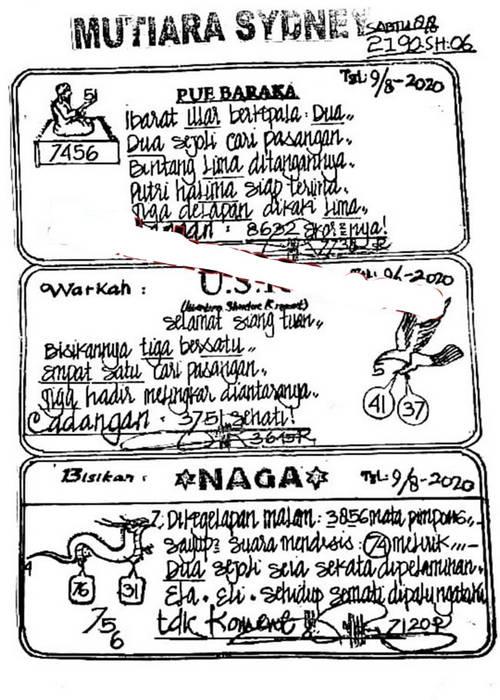 MUTIARA SYDNEY
SABTU
2192.SH:06
PUE BARAKA
Tgl: 9/8-2020
51
7456
Ibarat Ular berkepala: Dua,,
Dua sejoli cari pasangan.
Bintang Lima ditangannya.
Putri halima siap terima.
Tiga delapan dikaki lima,,
: 8632
Warkah :
06-2020
selamat siang tuan,,
Bisikannya tiga bersatu,,
empat satu cari pasangan.
Tiga hadir melingkar diantaranya.
Cadangan : 3751 sehati!
3645R
5
41 37
Bisikan : NAGA Tgl: 9/8-2020
7. Dikegelapan malam: 3856 mata pimpong,,
suara mendisis: 74 melirik
Dua sejoli seia sekata dipelaminan.
Ela. Eli. sehidup semati
4
76 31
756
tdk Koment
7120R